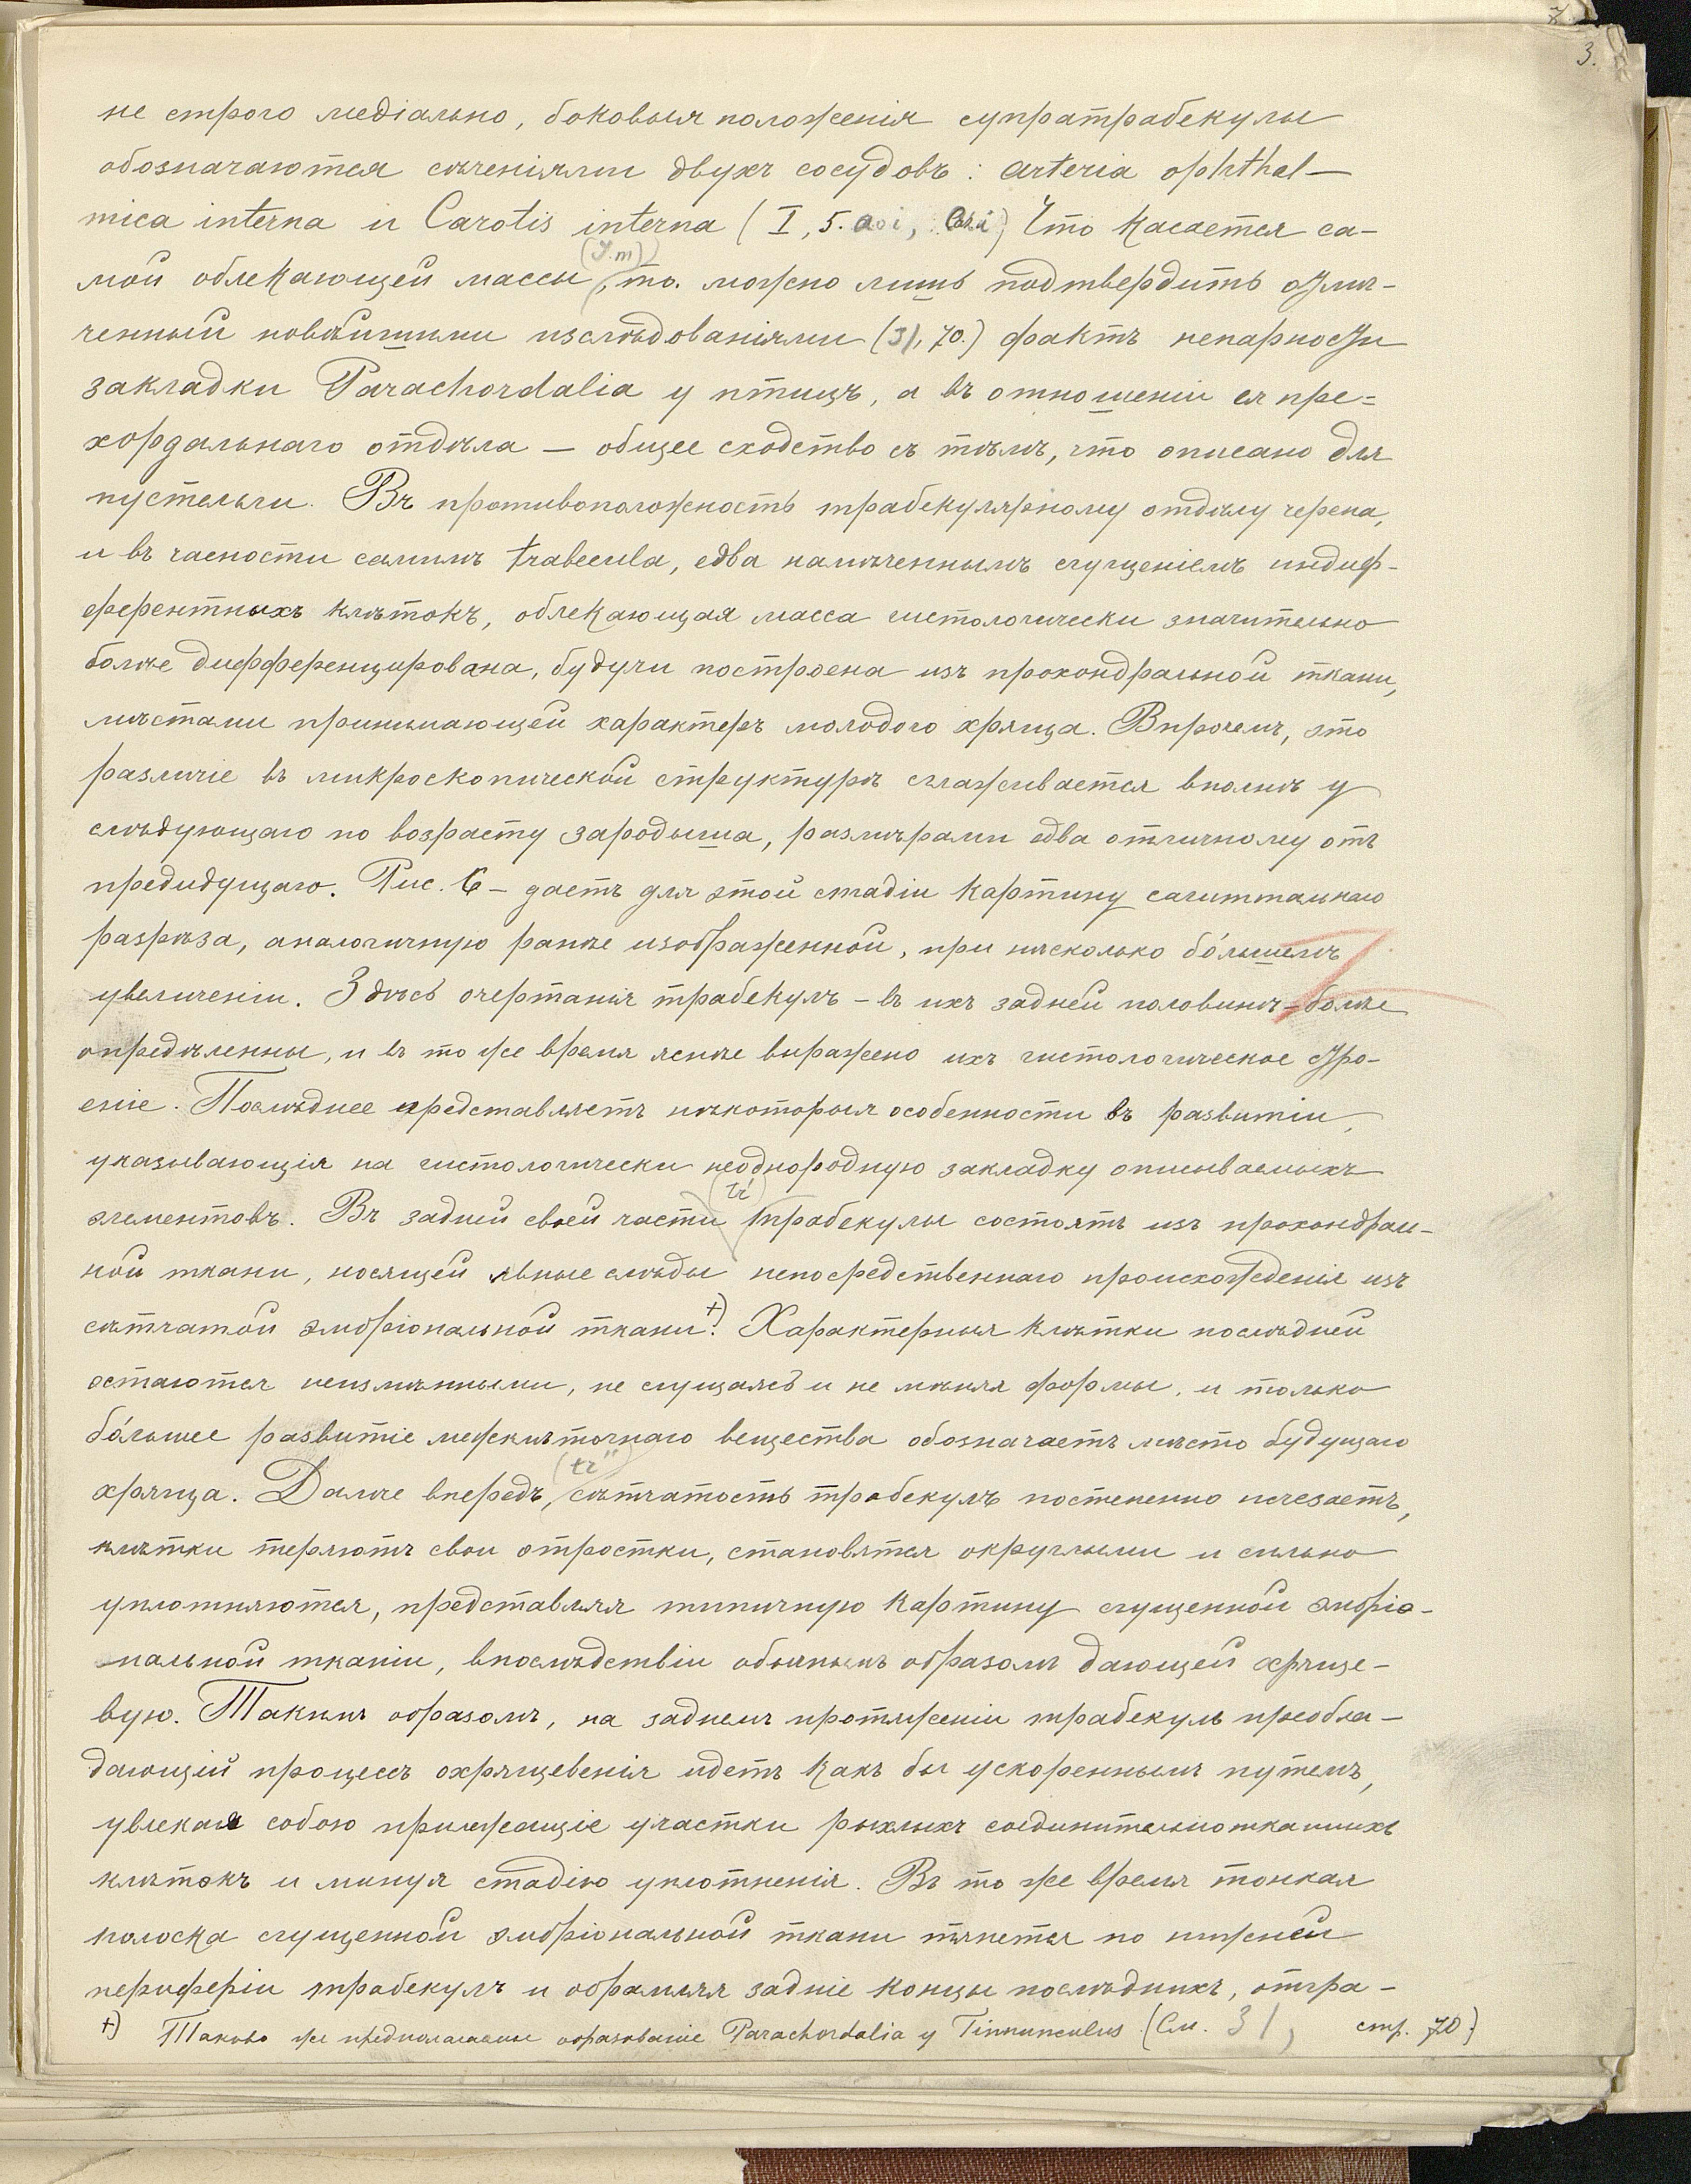 3.
не строго медіально, боковыя положенія супратрабекулы
обозначаются сѣченіями двухъ сосудовъ: arteria ophthal-
mica interna и Carotis interna (I, 5. aoi, Cri) Что касается са-
(J.m)
мой облекающей массы, то можно лишь подтвердить отмѣ-
ченный новѣйшими изслѣдованіями (31, 70.) фактъ непарности
закладки Parachordalia у птицъ, а въ отношеніи ея пре=
хордальнаго отдѣла — общее сходство съ тѣмъ, что описано для
пустельги. Въ противоположность трабекулярному отдѣлу черепа,
и въ часности самимъ trabecula, едва намѣченнымъ сгущеніемъ индиф-
ферентныхъ клѣтокъ, облекающая масса гистологически значительно
болѣе дифференцирована, будучи построена изъ прохондральной ткани,
мѣстами принимающей характеръ молодого хряща. Впрочемъ, это
различіе въ микроскопической структурѣ сглаживается вполнѣ у
слѣдующаго по возрасту зародыша, размѣрами едва отличному отъ
предидущаго. Рис. 6 - даетъ для этой стадіи картину сагиттальнаго
разрѣза, аналогичную ранѣе изображенной, при нѣсколько бо́льшемъ
увеличеніи. Здѣсь очертанія трабекулъ - въ ихъ задней половинѣ - болѣе
опредѣленны, и въ то же время яснѣе выражено ихъ гистологическое стро-
еніе. Послѣднее представляетъ нѣкоторыя особенности въ развитіи,
указывающія на гистологически неоднородную закладку описываемыхъ
(tr')
элементовъ. Въ задней своей части трабекулы состоятъ изъ прохондраль-
ной ткани, носящей явные слѣды непосредственнаго происхожденія изъ
сѣтчатой эмбріональной ткани +). Характерныя клѣтки послѣдней
остаются неизмѣнными, не сгущаясь и не мѣняя формы, и только
бо́льшее развитіе межклѣточнаго вещества обозначаетъ мѣсто будущаго
(tr")
хряща. Далѣе впередъ, сѣтчатость трабекулъ постепенно исчезаетъ,
клѣтки теряютъ свои отростки, становятся округлыми и сильно
уплотняются, представляя типичную картину сгущенной эмбріо-
нальной ткани, впослѣдствіи обычнымъ образомъ дающей хряще-
вую. Такимъ образомъ, на заднемъ протяженіи трабекулъ преобла-
дающій процессъ охрящевенія идетъ какъ бы ускореннымъ путемъ,
увлекая собою прилежащіе участки рыхлыхъ соединительнотканныхъ
клѣтокъ и минуя стадію уплотненія. Въ то же время тонкая
полоска сгущенной эмбріональной ткани тянется по нижней
периферіи трабекулъ и обрамляя задніе концы послѣднихъ, отгра-
+) Таково же предполагаемое образованіе Parachordalia у Tinnunculus (См. 31, стр. 70.)